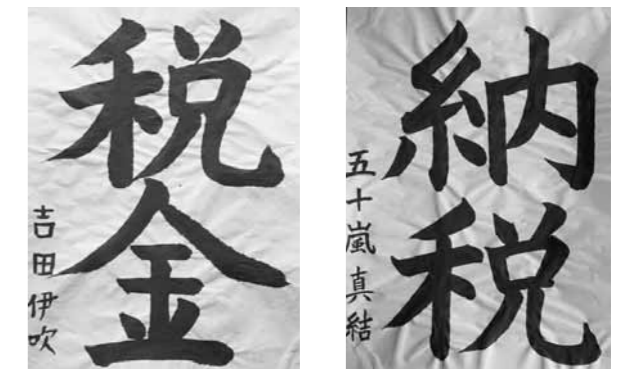 税金
吉田伊吹
納税
五十嵐真結